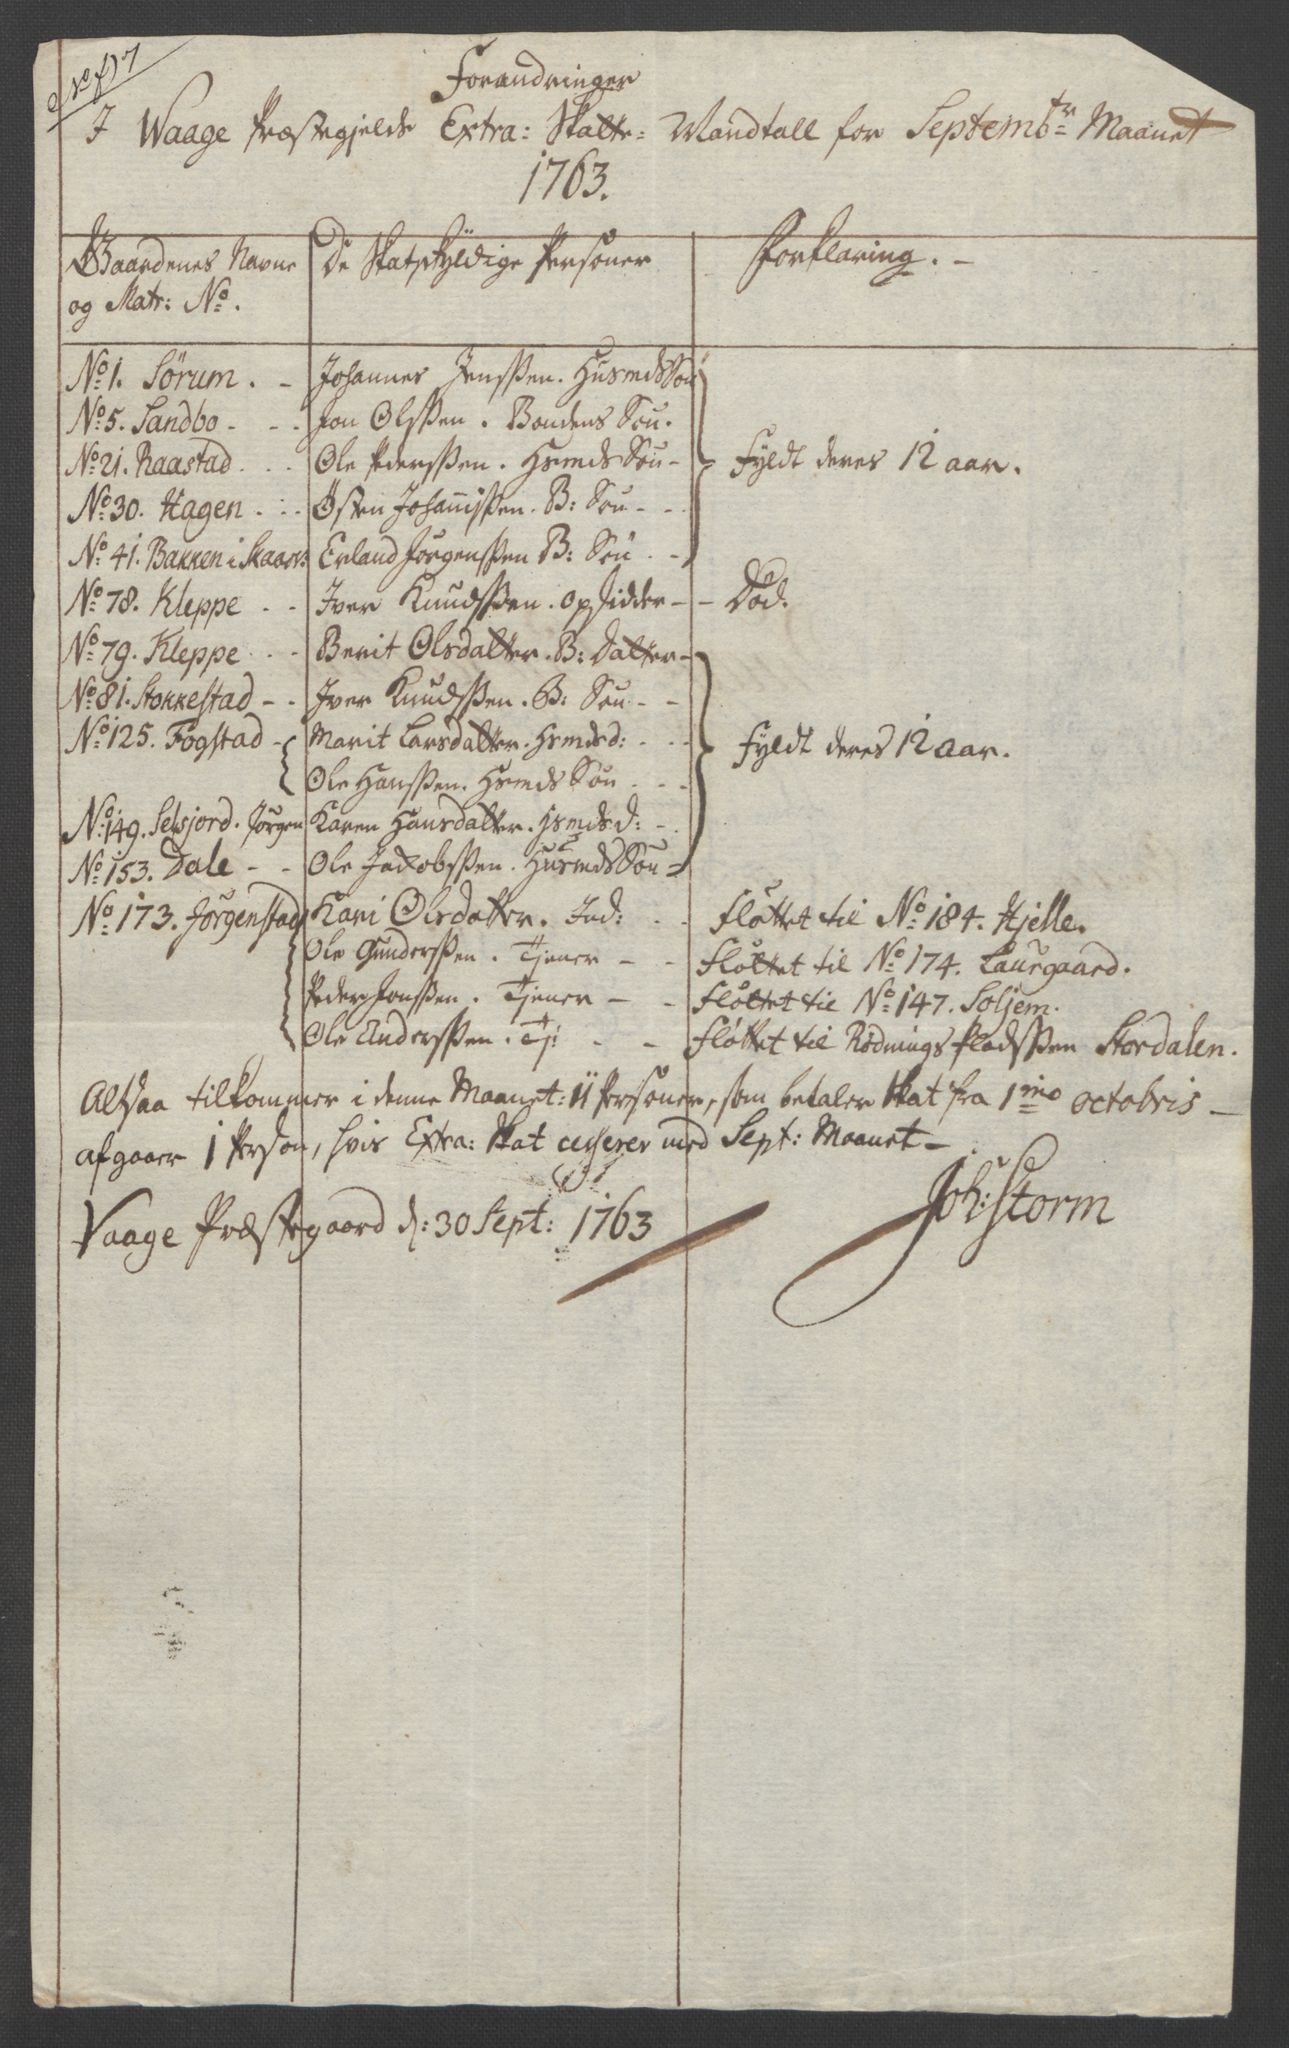 Forandringer
I Waage Præstegjelds Extra: Skatte: Mandtall for Septembtr Maanet
1763.
Gaardenes Navne De Skatskyldige Personer Forklaring.
og Matr: No.
No 1. Sörum. Johannes Jensßen. HusmdsSøn
No 5. Sandbo Jon Olsßen. Bondens Søn.
No 21. Raastad Ole Pedersßen. Hsmds Søn Fyldt deres 12 aar.
No 30. Hagen Östen Johannisßen. B: Søn
No 41. Bakken i Skaar: Erland Jörgensßen B: Søn
No 78. Kleppe Iver Knudsßen. opsidder Död.
No 79. Kleppe Berit Olsdatter. B: Datter
No 81. Stokkestad Iver Knudsßen. B: Søn
No 125. Fogstad Marit Larsdatter. Hsmdsd: Fyldt deres 12 aar.
Ole Hansßen. Hsmds Søn
No 149. Selsjord. Jörgen Karen Hansdatter. Hsmdsd:
No 153. Dale Ole Jackobsßen. HusmdsSøn
No 173. Jörgenstad Kari Olsdatter. Ind: fløttet til No 184. Hjelle.
Ole Gundersßen. Tjener fløttet til No 174. Laurgaard.
Peder Jonsßen. Tjener fløttet til No 147. Soljem.
Ole Andersßen. Tj: fløttet til Rödnings Pladsßen Stordalen.
Altsaa tilkommer i denne Maanet: 11 Personer, som betaler Skat fra 1mo octobris
afgaaer 1 Person, hvis Extra: Skat cesserer med Sept: Maanet
Vaage Præstegaard d: 30 Sept: 1763
Joh: Storm